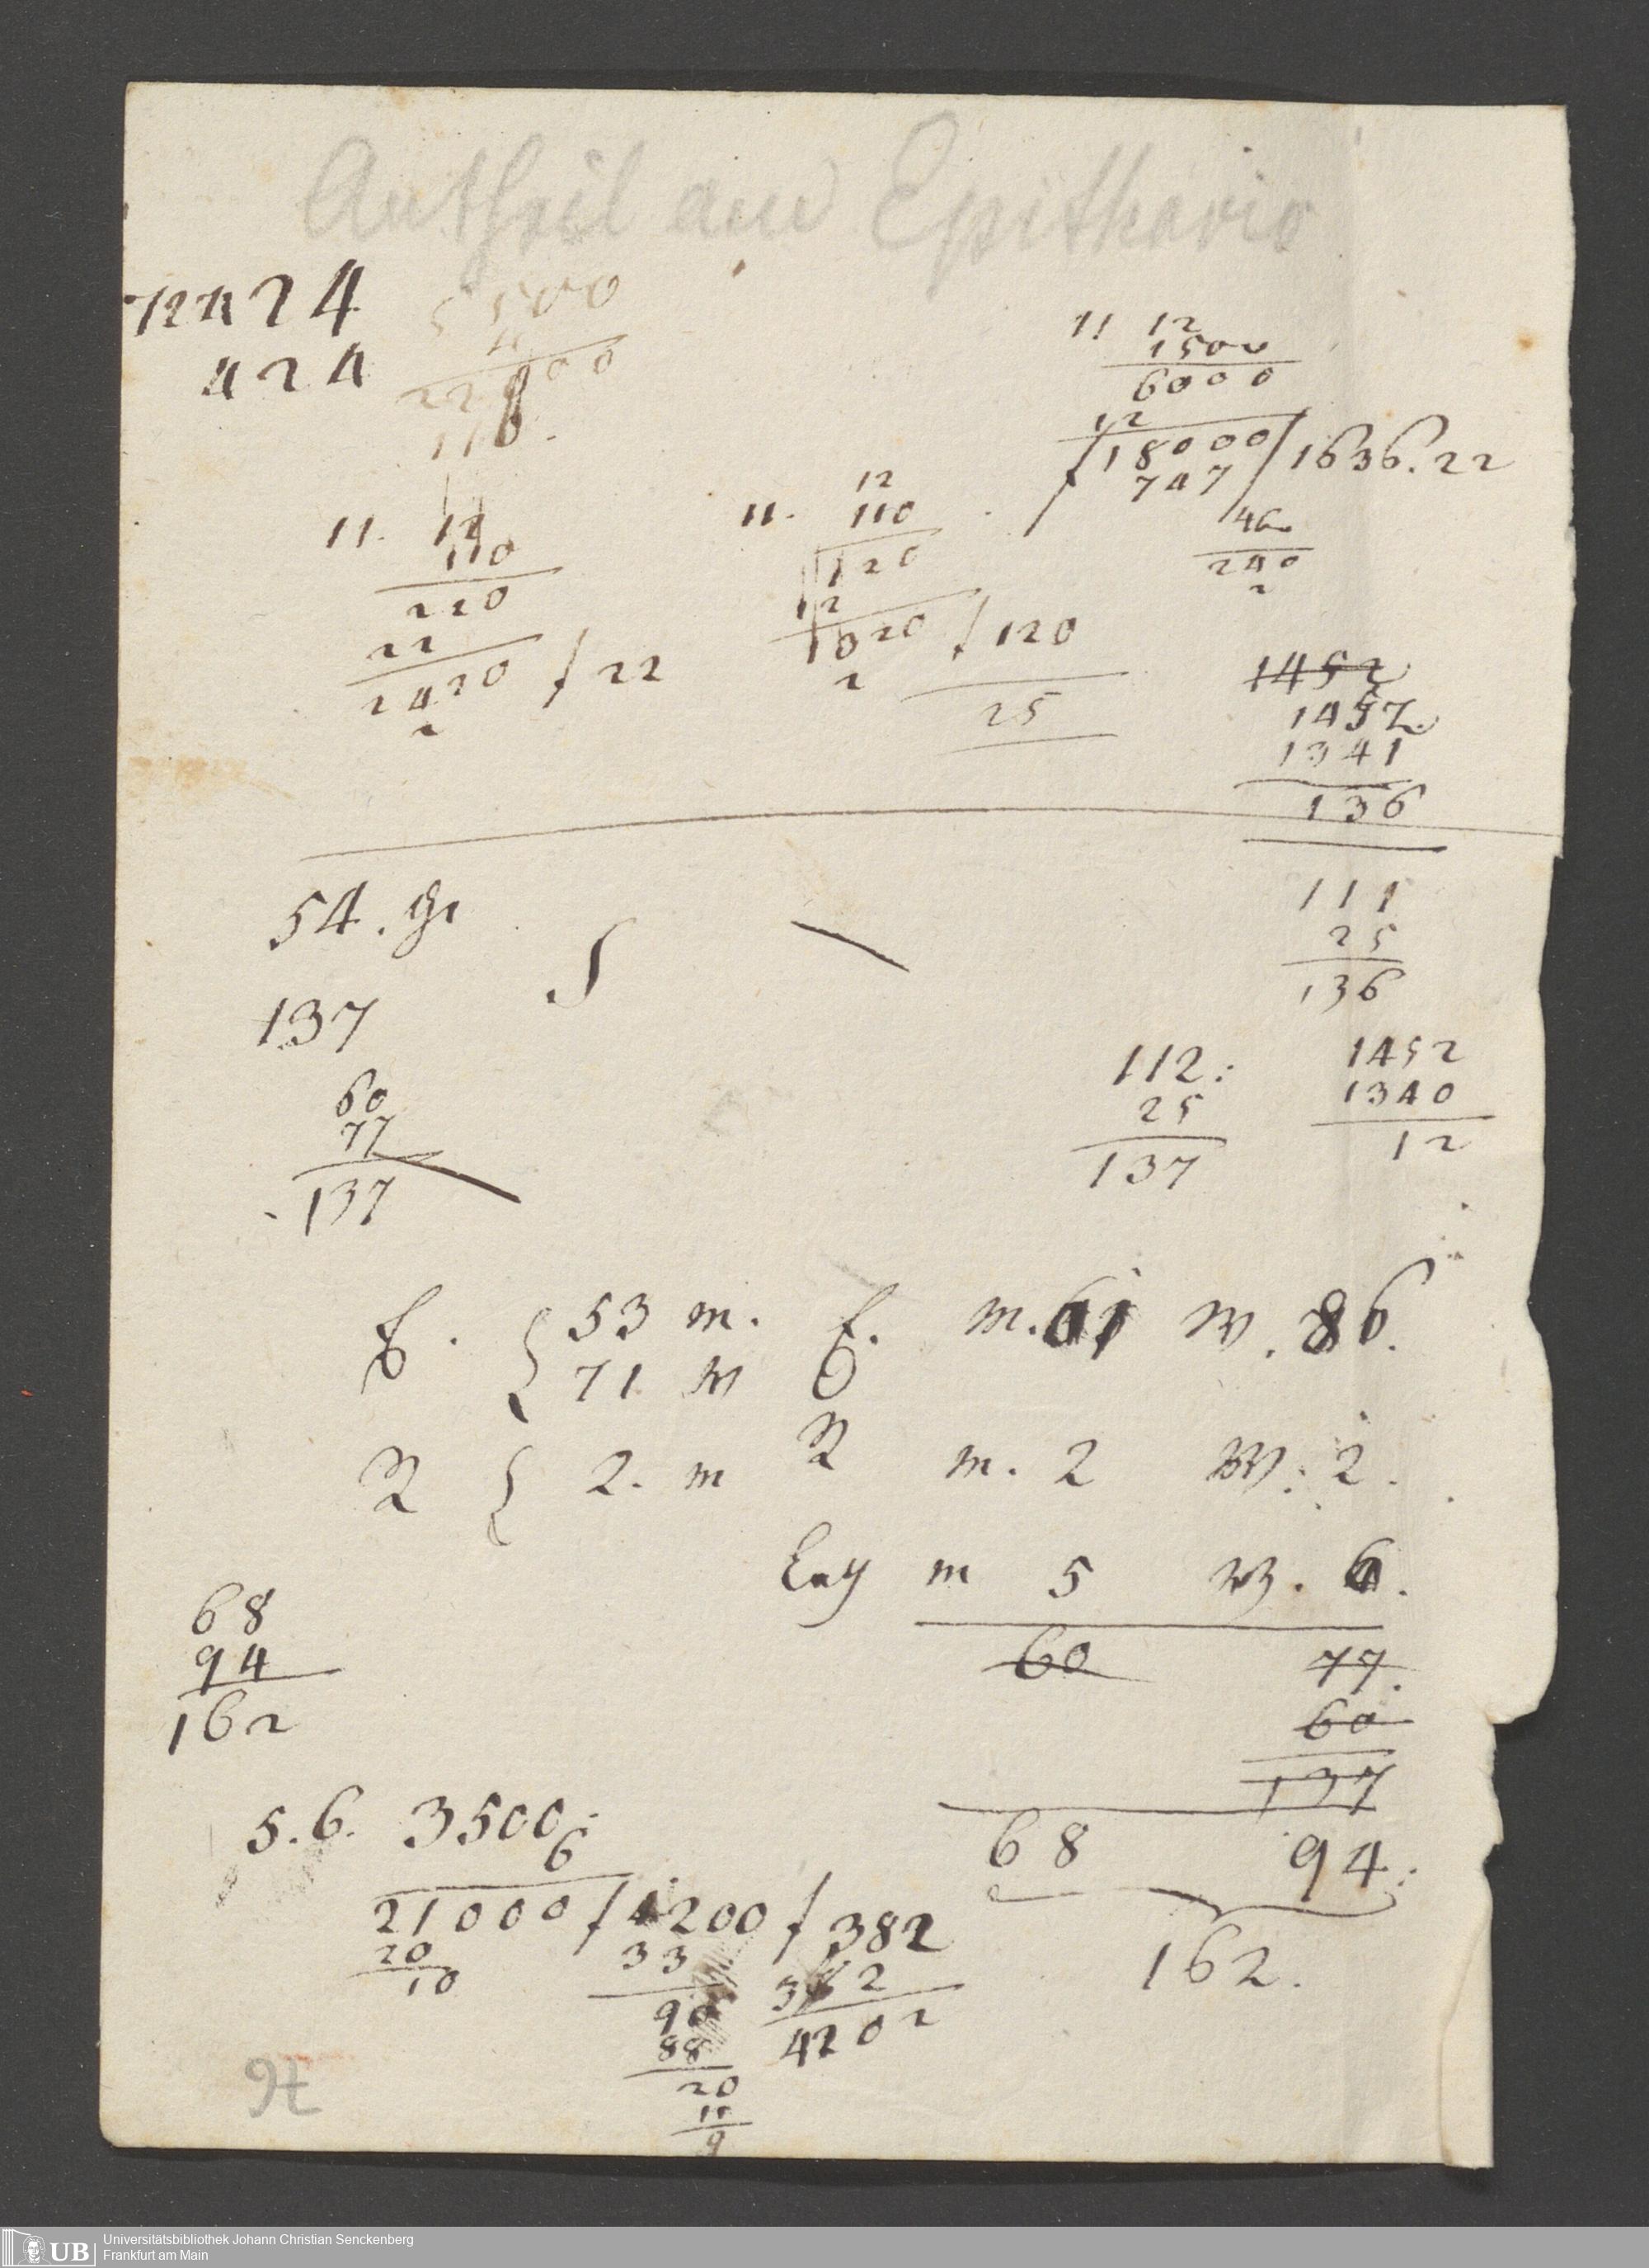 Antheil am Epithario
424
424
5500
4
22000
110.
11. 12
1500
6000
12
18000 / 1636.22
747
40
240
2
11. 12
110
120
12
1320 / 120
2
25
11.
110
220
22
2420 / 22
2
1452
1452.
1341
136
111
25
136
54. gr
137
60
77
137
112:
25
137
1452
1340
12
53 m.
71 w
m. 61 w. 86.
2. m
m. 2 W. 2.
Lay m 5 w. 6.
60 77.
60
137
68 94.
162.
68
94
162
5.6. 3500.
6
21000 / 4200 / 382
20
10
33
90
88
20
11
9
382
4202
Universitätsbibliothek Johann Christian Senckenberg
Frankfurt am Main
UB